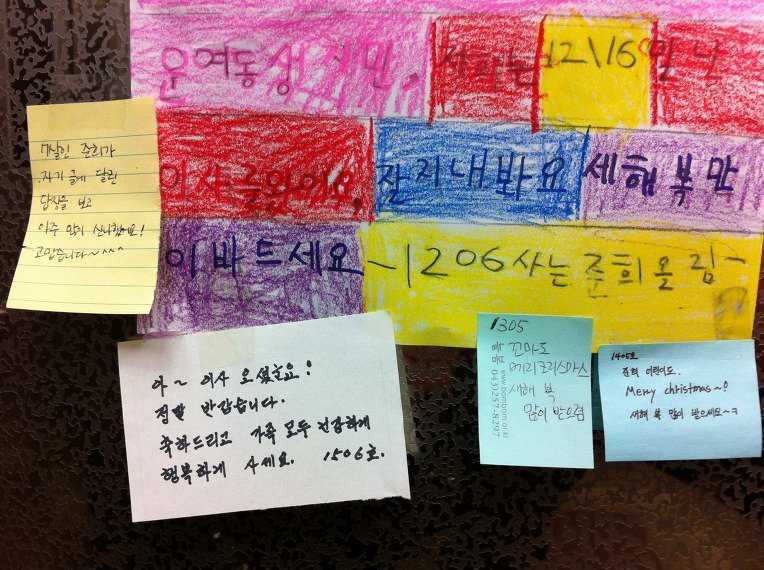 운여동생지민. 저히는12\16일날
이사를왔어요, 잘지내봐요 세해복만
이바드세요~1206사는준희올림~
7살인 준희가
자기 글에 달린
답장을 보고
아주 많이 신나했어요!
고맙습니다~^^^
아~ 이사 오셨군요!
정말 반갑습니다.
축하드리고 가족 모두 건강하게
행복하게 사세요. 1506호.
1305
꼬마도
메리크리스마스
새해 복
많이 받으렴
www.bombom.or.kr
043)257-8297
1405호
준희 어린이도.
Merry christmas~!
새해 복 많이 받으세요~